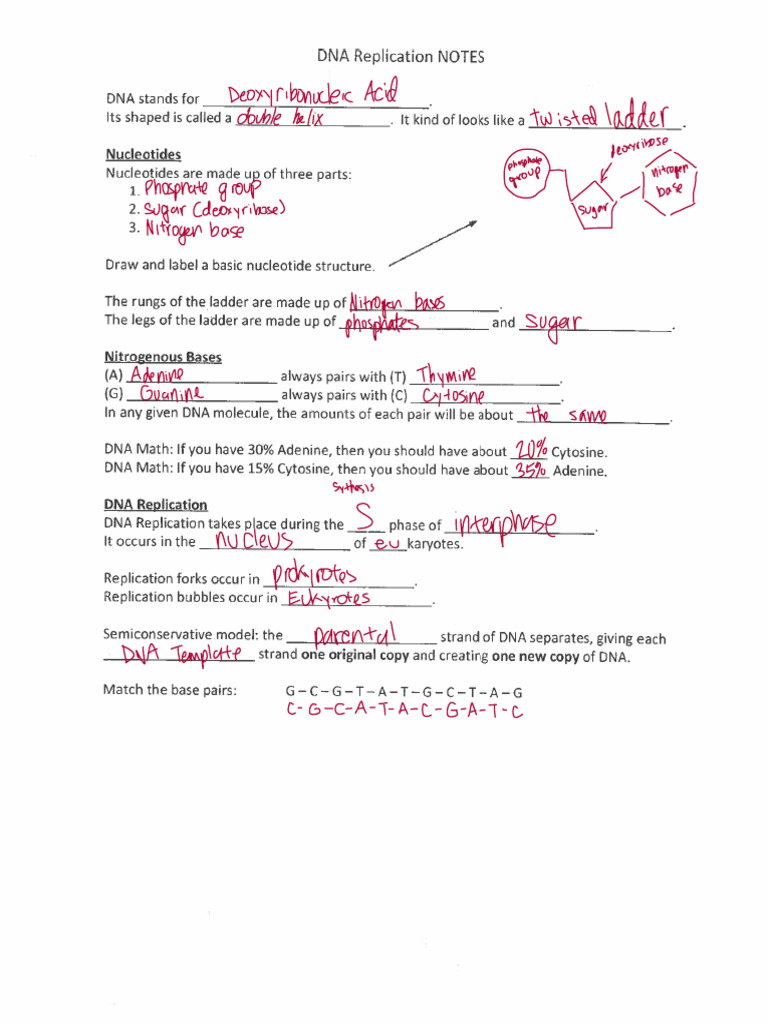 DNA Replication NOTES
DNA stands for Deoxyribonucleic Acid.
Its shaped is called a double helix. It kind of looks like a twisted ladder.
Nucleotides
Nucleotides are made up of three parts:
1. Phosphate group
2. Sugar (deoxyribose)
3. Nitrogen base
phosphate
group
deoxyribose
sugar
nitrogen
base
Draw and label a basic nucleotide structure.
The rungs of the ladder are made up of Nitrogen bases.
The legs of the ladder are made up of phosphates and sugar.
Nitrogenous Bases
(A) Adenine always pairs with (T) Thymine.
(G) Guanine always pairs with (C) Cytosine.
In any given DNA molecule, the amounts of each pair will be about the same.
DNA Math: If you have 30% Adenine, then you should have about 20% Cytosine.
DNA Math: If you have 15% Cytosine, then you should have about 35% Adenine.
Sythesis
DNA Replication
DNA Replication takes place during the S phase of interphase.
It occurs in the nucleus of eukaryotes.
Replication forks occur in prokyrotes.
Replication bubbles occur in Eukyrotes.
Semiconservative model: the parental strand of DNA separates, giving each
DNA Template strand one original copy and creating one new copy of DNA.
Match the base pairs: G – C – G – T – A – T – G – C – T – A – G
C- G -C -A -T- A -C - G -A -T - C